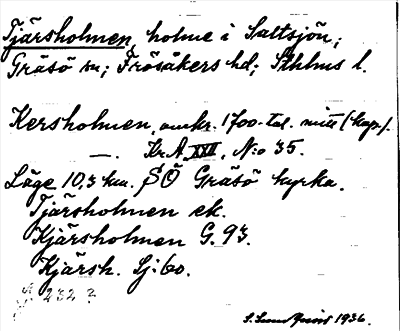 Tjärsholmen, holme i Saltsjön;
Gräsö sn; Frösåkers hd; Sthlms l.
Kersholmen, omkr. 1700-tal. mitt (kop.).
—. Kr.A. XVI, N:o 35.
Läge 10,3 km. SÖ Gräsö kyrka.
Tjärsholmen ek.
Kjärsholmen G. 93.
Kjärsh. Sj: 60.
232 ?
1936.